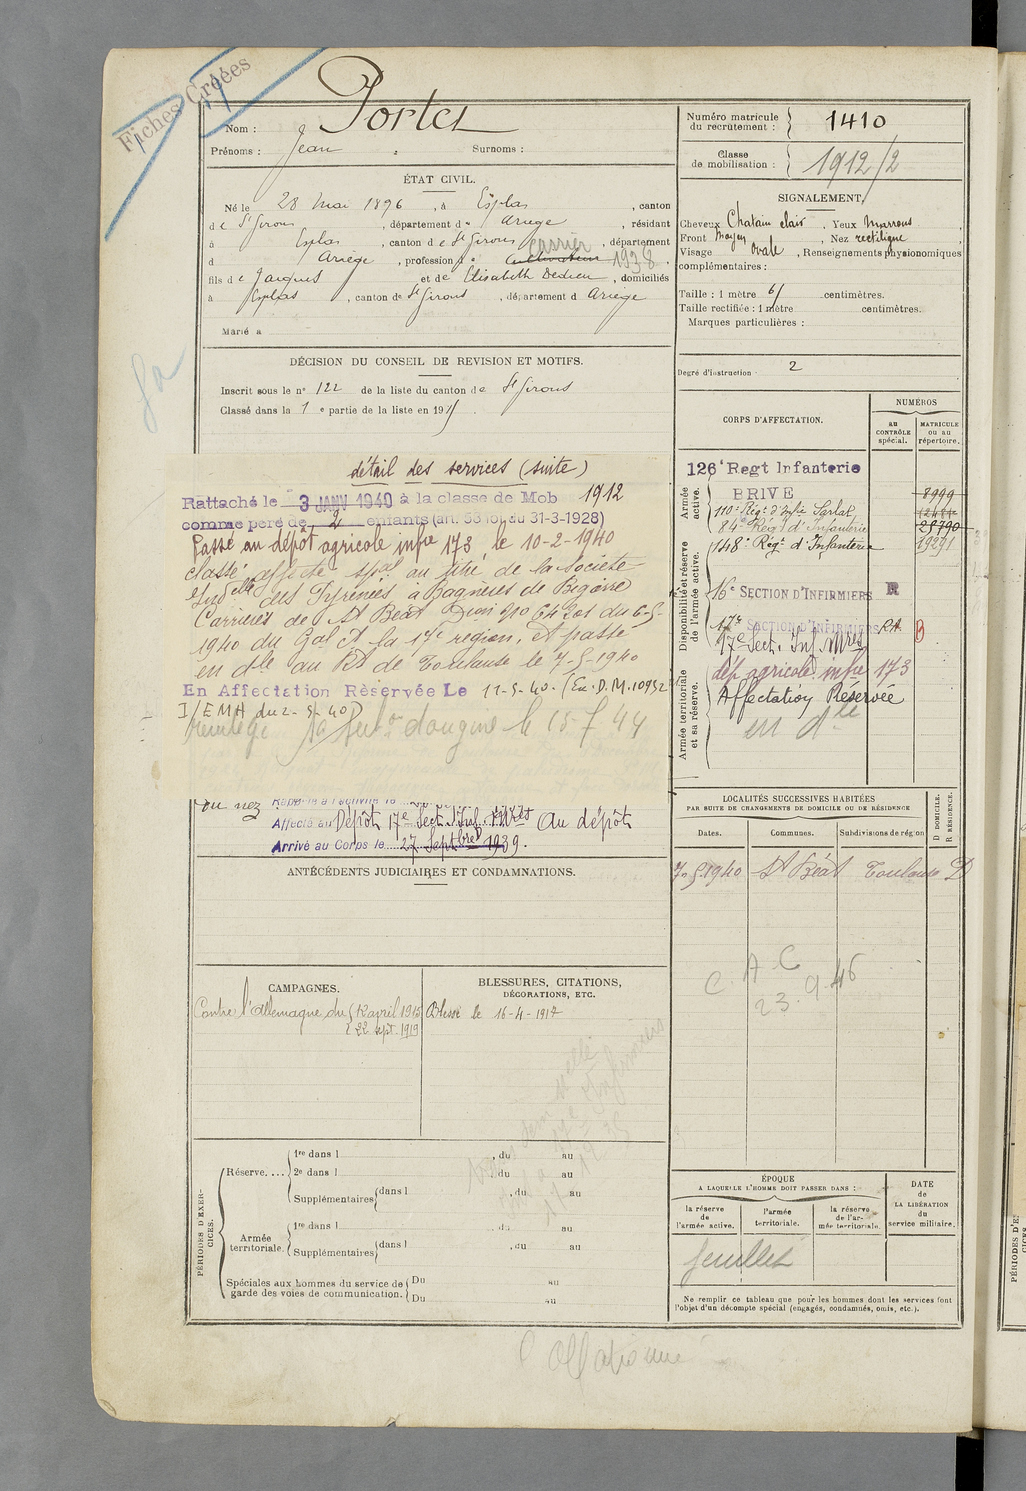 Fiches Créées
Nom : Portet
Prénoms : Jean Surnoms :
ÉTAT CIVIL.
Né le 28 Mai 1896, à Esplas, canton
de St Girons, département d Ariège, résidant
à Esplas, canton de St Girons, département
d Ariège, profession de Cultivateur Carrier 1938.
fils de Jacques et de Elisabeth Dedieu, domiciliés
à Esplas, canton de St Girons, département d Ariège
Marié à
DÉCISION DU CONSEIL DE REVISION ET MOTIFS.
Inscrit sous le n° 122 de la liste du canton de St Girons
Classé dans la 1e partie de la liste en 191
détail des services (suite)
Rattaché le 3 JANV 1940 à la classe de Mob 1912
comme père de 2 enfants (art. 58 loi du 31-3-1928)
Passé au dépôt agricole infrie 173, le 10-2-1940
classé affecté spal au titre de la Société
Indelle des Pyrénées à Bagnères de Bigorre
Carrières de St Béat du 6-5-
1940 du Gal Ct la 17e région, et passé
en dle au Rt de Toulouse le 7-5-1940
En Affectation Réservée Le 11-5-40. (Ex. D.M. 10952
I/EMA du 2-5-40)
d'origine le 15-5-44
ou nez
Rappelé à l'activité le
Affecté au Dépôt 17e Sect. Inf. Mres Au dépôt
Arrivé au Corps le 27 Septbre 1939.
ANTÉCÉDENTS JUDICIAIRES ET CONDAMNATIONS.
CAMPAGNES.
Contre l'Allemagne du 12 april 1915
22 sept. 1919
BLESSURES, CITATIONS,
DÉCORATIONS, ETC.
Blessé le 16-4-1917
PÉRIODES D'EXERCICES.
Réserve.... 1re dans l , du au
2e dans l , du au
Supplémentaires dans l , du au
Armée territoriale. 1re dans l , du au
Supplémentaires dans l , du au
Spéciales aux hommes du service de garde des voies de communication. Du au
Du au
Numéro matricule du recrutement : 1410
Classe de mobilisation : 1912/2
SIGNALEMENT
Cheveux Chatain clair. Yeux marrons
Front moyen, Nez rectiligne
Visage ovale, Renseignements physionomiques
complémentaires :
Taille : 1 mètre 61 centimètres.
Taille rectifiée : 1 mètre centimètres.
Marques particulières :
Degré d'instruction 2
CORPS D'AFFECTATION.
NUMÉROS
AU CONTRÔLE spécial.
MATRICULE OU AU répertoire.
Armée active.
126e Regt Infanterie
BRIVE 8999
110e Régt d'Infie Sarlat
84e Régt d'Infanterie 28790
Disponibilité et réserve de l'armée active.
148e Régt d'Infanterie 19291
16e SECTION D'INFIRMIERS R
17e SECTION D'INFIRMIERS RA. B
17e Sect. Inf. Mres
Armée territoriale et sa réserve.
dép agricole infie 173
Affectation Réservée
en dle
LOCALITÉS SUCCESSIVES HABITÉES
PAR SUITE DE CHANGEMENTS DE DOMICILE OU DE RÉSIDENCE
Dates. Communes. Subdivisions de région D DOMICILE. R RÉSIDENCE.
7-5-1940 St Béat Toulouse D
C. A C
23.9.46
ÉPOQUE
A LAQUELLE L'HOMME DOIT PASSER DANS :
la réserve de l'armée active.
l'armée territoriale.
la réserve de l'armée territoriale.
DATE de LA LIBÉRATION du service militaire.
feuillet
Ne remplir ce tableau que pour les hommes dont les services font
l'objet d'un décompte spécial (engagés, condamnés, omis, etc.).